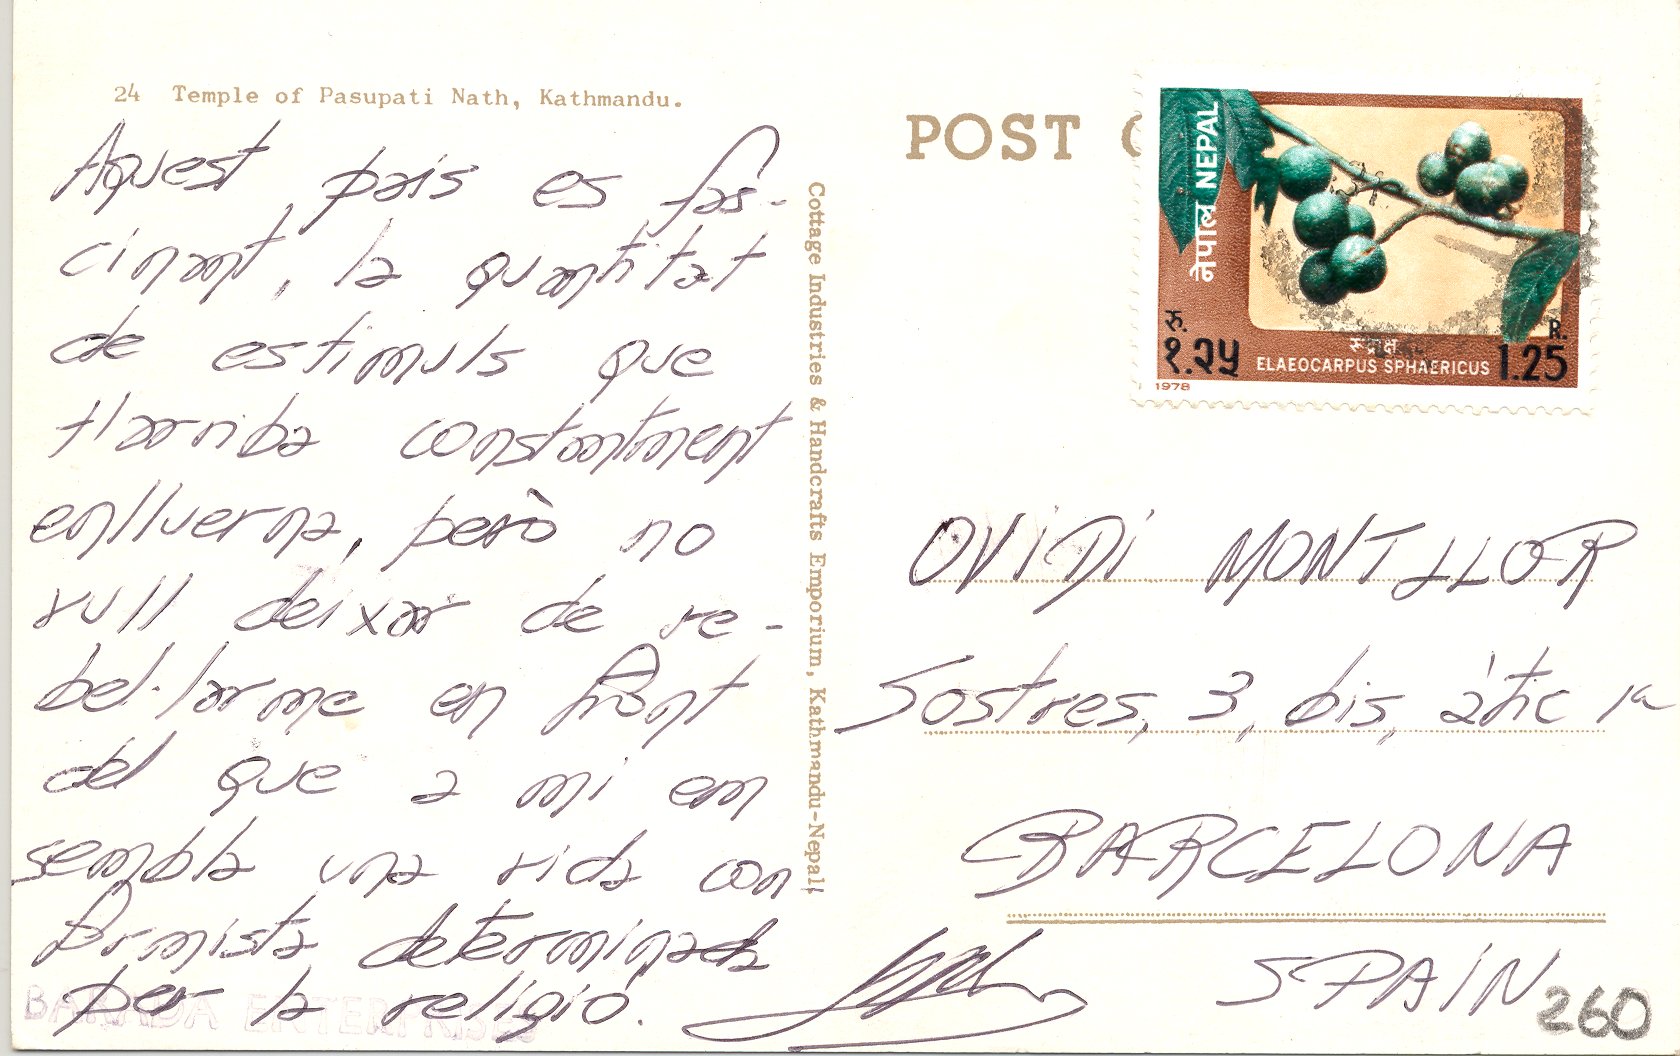 24 Temple of Pasupati Nath, Kathmandu.
Aquest pais es fas-
cinant, la quantitat
de estimuls que
t'arriba constantment
enlluerna, però no
vull deixar de re-
bel·larme en front
del que a mi em
sembla una vida con
formista determinada
per la religió.
BARADA ENTERPRISES
Cottage Industries & Handcrafts Emporium, Kathmandu-Nepal.
POST C
नेपाल NEPAL
रु.
१.२५
रुद्राक्ष
ELAEOCARPUS SPHAERICUS
R.
1.25
1978
OViDi MONTLLOR
Sostres, 3, bis, àtic 1ª
BARCELONA
SPAIN
260